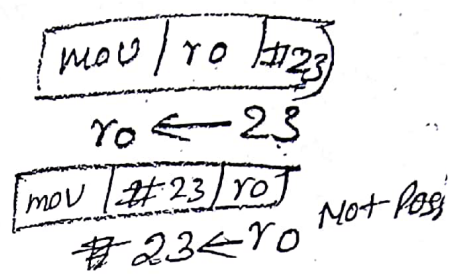 mov | r0 | #23
r0 ← 23
mov | # 23 | r0
# 23 ← r0 Not Poss